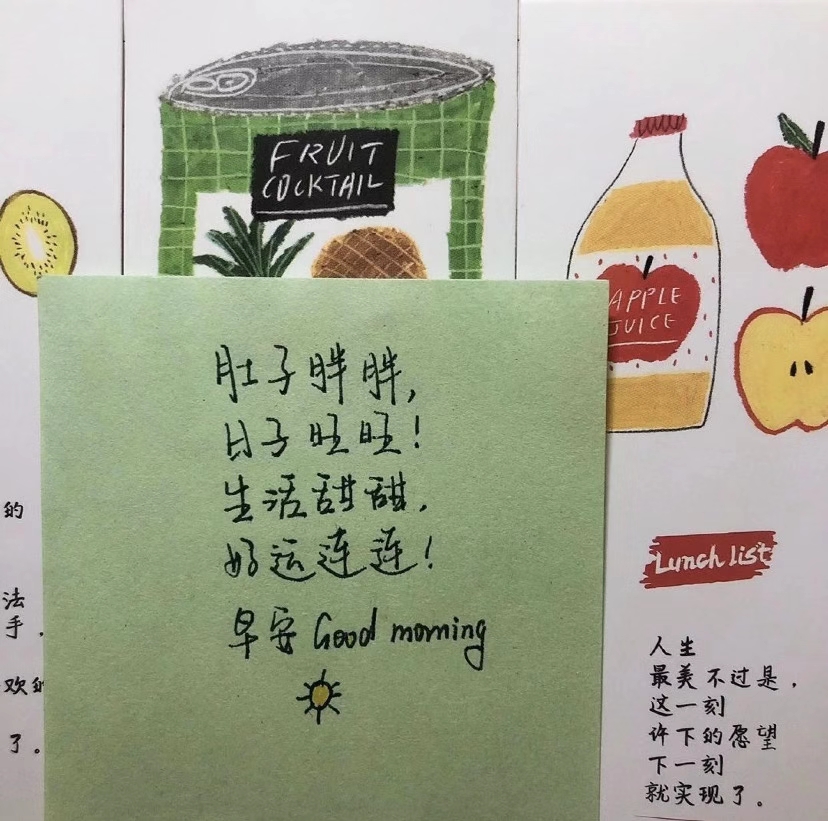 FRUIT
COCKTAIL
APPLE
JUICE
肚子胖胖,
日子旺旺!
生活甜甜,
好运连连!
早安 Good morning
的
法
手,
欢的
了。
Lunch list
人生
最美不过是,
这一刻
许下的愿望
下一刻
就实现了。